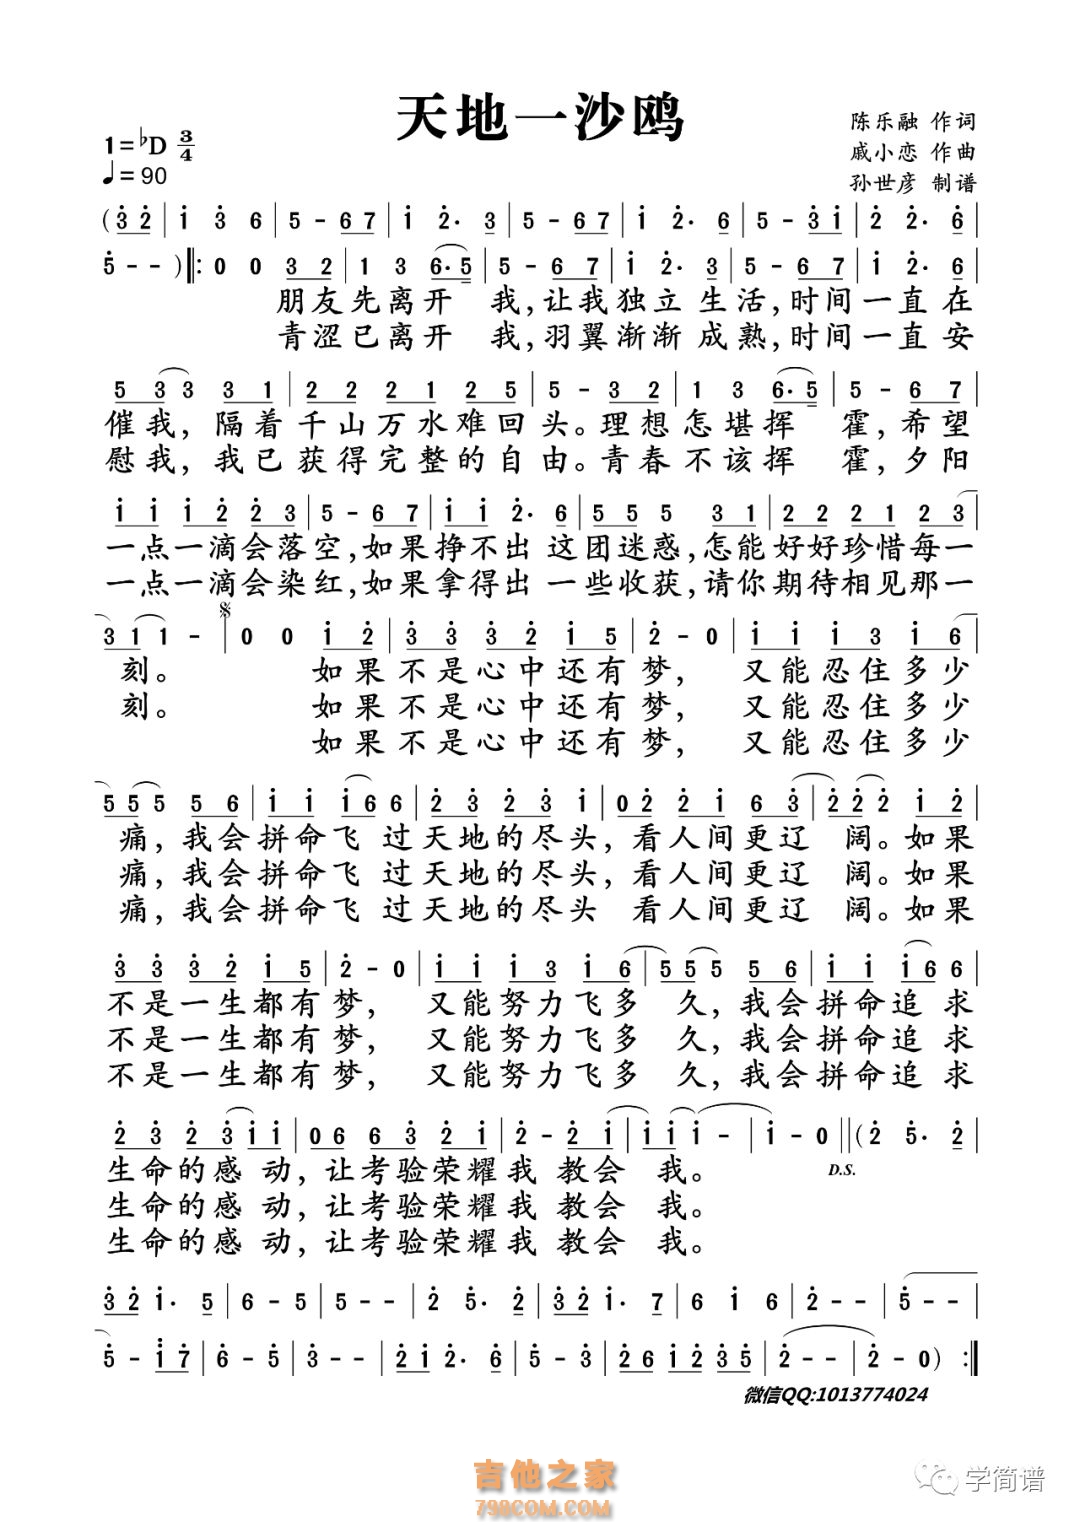 天地一沙鸥
1=♭D 3/4
♩=90
陈乐融 作词
戚小恋 作曲
孙世彦 制谱
(3 2 | 1 3 6 | 5 - 6 7 | 1 2· 3 | 5 - 6 7 | 1 2· 6 | 5 - 3 1 | 2 2· 6 |
5 - - ) ‖: 0 0 3 2 | 1 3 6·5 | 5 - 6 7 | 1 2· 3 | 5 - 6 7 | 1 2· 6 |
朋友先离开 我,让我独立生活,时间一直在
青涩已离开 我,羽翼渐渐成熟,时间一直安
5 3 3 3 1 | 2 2 2 1 2 5 | 5 - 3 2 | 1 3 6·5 | 5 - 6 7 |
催我, 隔着千山万水难回头。理想怎堪挥 霍,希望
慰我, 我已获得完整的自由。青春不该挥 霍,夕阳
1 1 1 2 2 3 | 5 - 6 7 | 1 1 2· 6 | 5 5 5 3 1 | 2 2 2 1 2 3 |
一点一滴会落空,如果挣不出 这团迷惑,怎能好好珍惜每一
一点一滴会染红,如果拿得出 一些收获,请你期待相见那一
3 1 1 - | 0 0 1 2 | 3 3 3 2 1 5 | 2 - 0 | 1 1 1 3 1 6 |
刻。 如果不是心中还有梦, 又能忍住多少
刻。 如果不是心中还有梦, 又能忍住多少
如果不是心中还有梦, 又能忍住多少
5 5 5 5 6 | 1 1 1 6 6 | 2 3 2 3 1 | 0 2 2 1 6 3 | 2 2 2 1 2 |
痛,我会拼命飞 过天地的尽头,看人间更辽 阔。如果
痛,我会拼命飞 过天地的尽头,看人间更辽 阔。如果
痛,我会拼命飞 过天地的尽头 看人间更辽 阔。如果
3 3 3 2 1 5 | 2 - 0 | 1 1 1 3 1 6 | 5 5 5 5 6 | 1 1 1 6 6 |
不是一生都有梦, 又能努力飞多 久,我会拼命追 求
不是一生都有梦, 又能努力飞多 久,我会拼命追 求
不是一生都有梦, 又能努力飞多 久,我会拼命追 求
2 3 2 3 1 1 | 0 6 6 3 2 1 | 2 - 2 1 | 1 1 1 - | 1 - 0 ‖ (2 5· 2 |
D.S.
生命的感 动,让考验荣耀我 教会 我。
生命的感 动,让考验荣耀我 教会 我。
生命的感 动,让考验荣耀我 教会 我。
3 2 1· 5 | 6 - 5 | 5 - - | 2 5· 2 | 3 2 1· 7 | 6 1 6 | 2 - - | 5 - - |
5 - 1 7 | 6 - 5 | 3 - - | 2 1 2· 6 | 5 - 3 | 2 6 1 2 3 5 | 2 - - | 2 - 0) :‖
微信QQ:1013774024
吉他之家
798COM.COM
学简谱